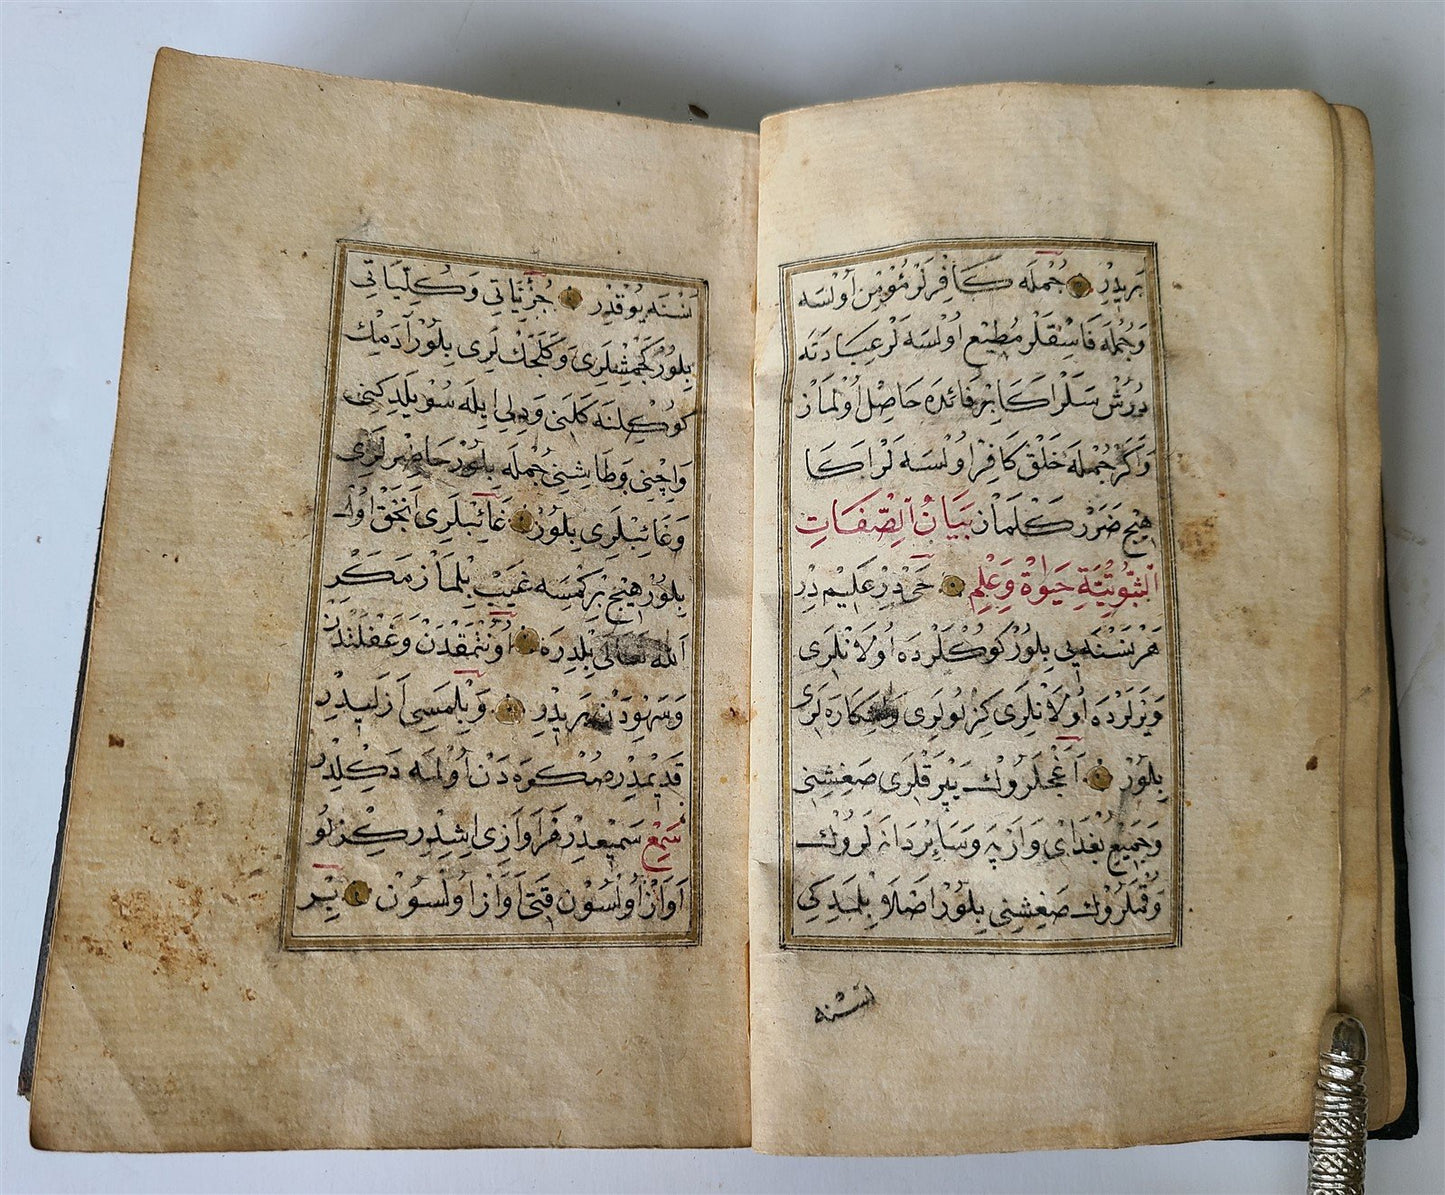 بَرِيدِرْ جُمْلَه كَافِرْلَرْ مُؤْمِنْ اُولْسَه
وَجُمْلَه فَاسِقْلَرْ مُطِيعْ اُولْسَه لَرْ عِبَادَتَه
دُرُشْ سَلَرْ اكَا بِرْ فَائِدَه حَاصِلْ اُولْمَازْ
وَكَرْ جُمْلَه خَلْقْ كَافِرْ اُولْسَه لَرْ اكَا
هِيچْ ضَرَرْ كَلْمَازْ بَيَانُ الصِّفَاتِ
الثُّبُوتِيَّةِ حَيَوة وَعِلْمِ حَيْ دِرْ عَلِيم دِرْ
هَرْ نَسْنَه يِي بِلُورْ كُوكْلَرْدَه اُولَانْلَرِى
وَيَرْلَرْدَه اُولَانْلَرِى كِزْلُولَرِى وَاشِكَارَه لَرِى
بِلُورْ اَغَجْلَرُوكْ يَپْرَقْلَرِى صَغِشِنِى
وَجَمِيعْ بُغْدَاىْ وَارْپَه وَسَائِرْ دَانَه لَرُوكْ
وَقُمْلَرُوكْ صَغِشِنِى بِلُورْ اَصْلَا بِلْمَدِكِى
نسنه
نَسْنَه يُوقْدِرْ جُزْئِيَّاتِى وَكُلِّيَاتِى
بِلُورْ كَچْمِشْلَرِى وَكَلَجَكْ لَرِى بِلُورْ آدَمِكْ
كُوكْلِنَه كَلَنِى وَدِلِى اِيلَه سُويْلَدِكِنِى
وَاِچِنِى وَطَاشِنِى جُمْلَه بِلُورْ حَاضِرْلَرِى
وَغَائِبْلَرِى بِلُورْ غَائِبْلَرِى اَنْجَقْ اُولْ
بِلُورْ هِيچْ بِرْ كِمْسَه غَيْبْ بِلْمَازْ مَكَرْ
اللّٰه تَعَالَى بِلْدِرَه اُونُتْمَقْدَنْ وَغَفْلَتْدَنْ
وَسَهْودَنْ بَرِيدِرْ وَبِلْمَسِى اَزَلِيدِرْ
قَدِيمْدِرْ صُكْرَه دَنْ اُولْمَه دَكِلْدِرْ
سَمِعْ سَمِيعْدِرْ هَرْ آوَازِى اِشِدِرْ كِزْلُو
آوَازْ اُولْسُونْ قَتِى آوَازْ اُولْسُونْ بِرْ